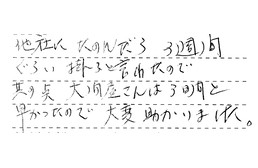 他社に たのんだら 3週間
ぐらい掛ると言われたので
其の点 大洞屋さんは3日間と
早かったので 大変助かりました。